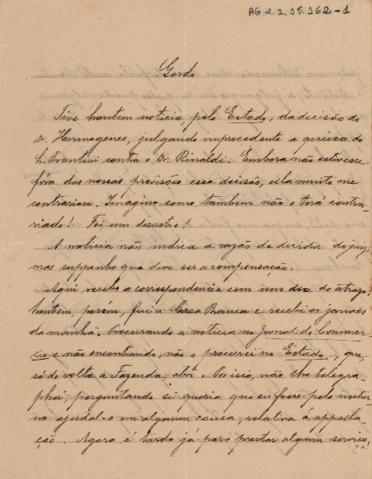 AG.2.2.15.162-1
Gordo
Tive hontem noticia pelo Estado, da decisão do
Dr. Hermogenes, julgando improcedente a queixa do
contra o Dr. Rinaldi. Embora não estivesse
fóra das nossas previsões essa decisão, ella muito me
contrariou. Imagino como tambem não o terá contra-
riado! Foi um desastre!
A noticia não indica a razão de decidir do juiz,
mas supponho que deve ser a compensação.
Aqui recebo a correspondencia com um dia de atrazo
hontem, porém, fui a Casa Branca e recebi os jornaes
da manhã. Procurando a noticia no Jornal do Commer-
cio e não encontrando, não a procurei no Estado, que,
só de volta a Fazenda, abri. Por isso, não lhe telegra-
phei, perguntando si queria que eu fosse pelo nocturno
ajudal-o em alguma cousa, relativa a appella-
ção. Agora é tarde já para prestar algum serviço,